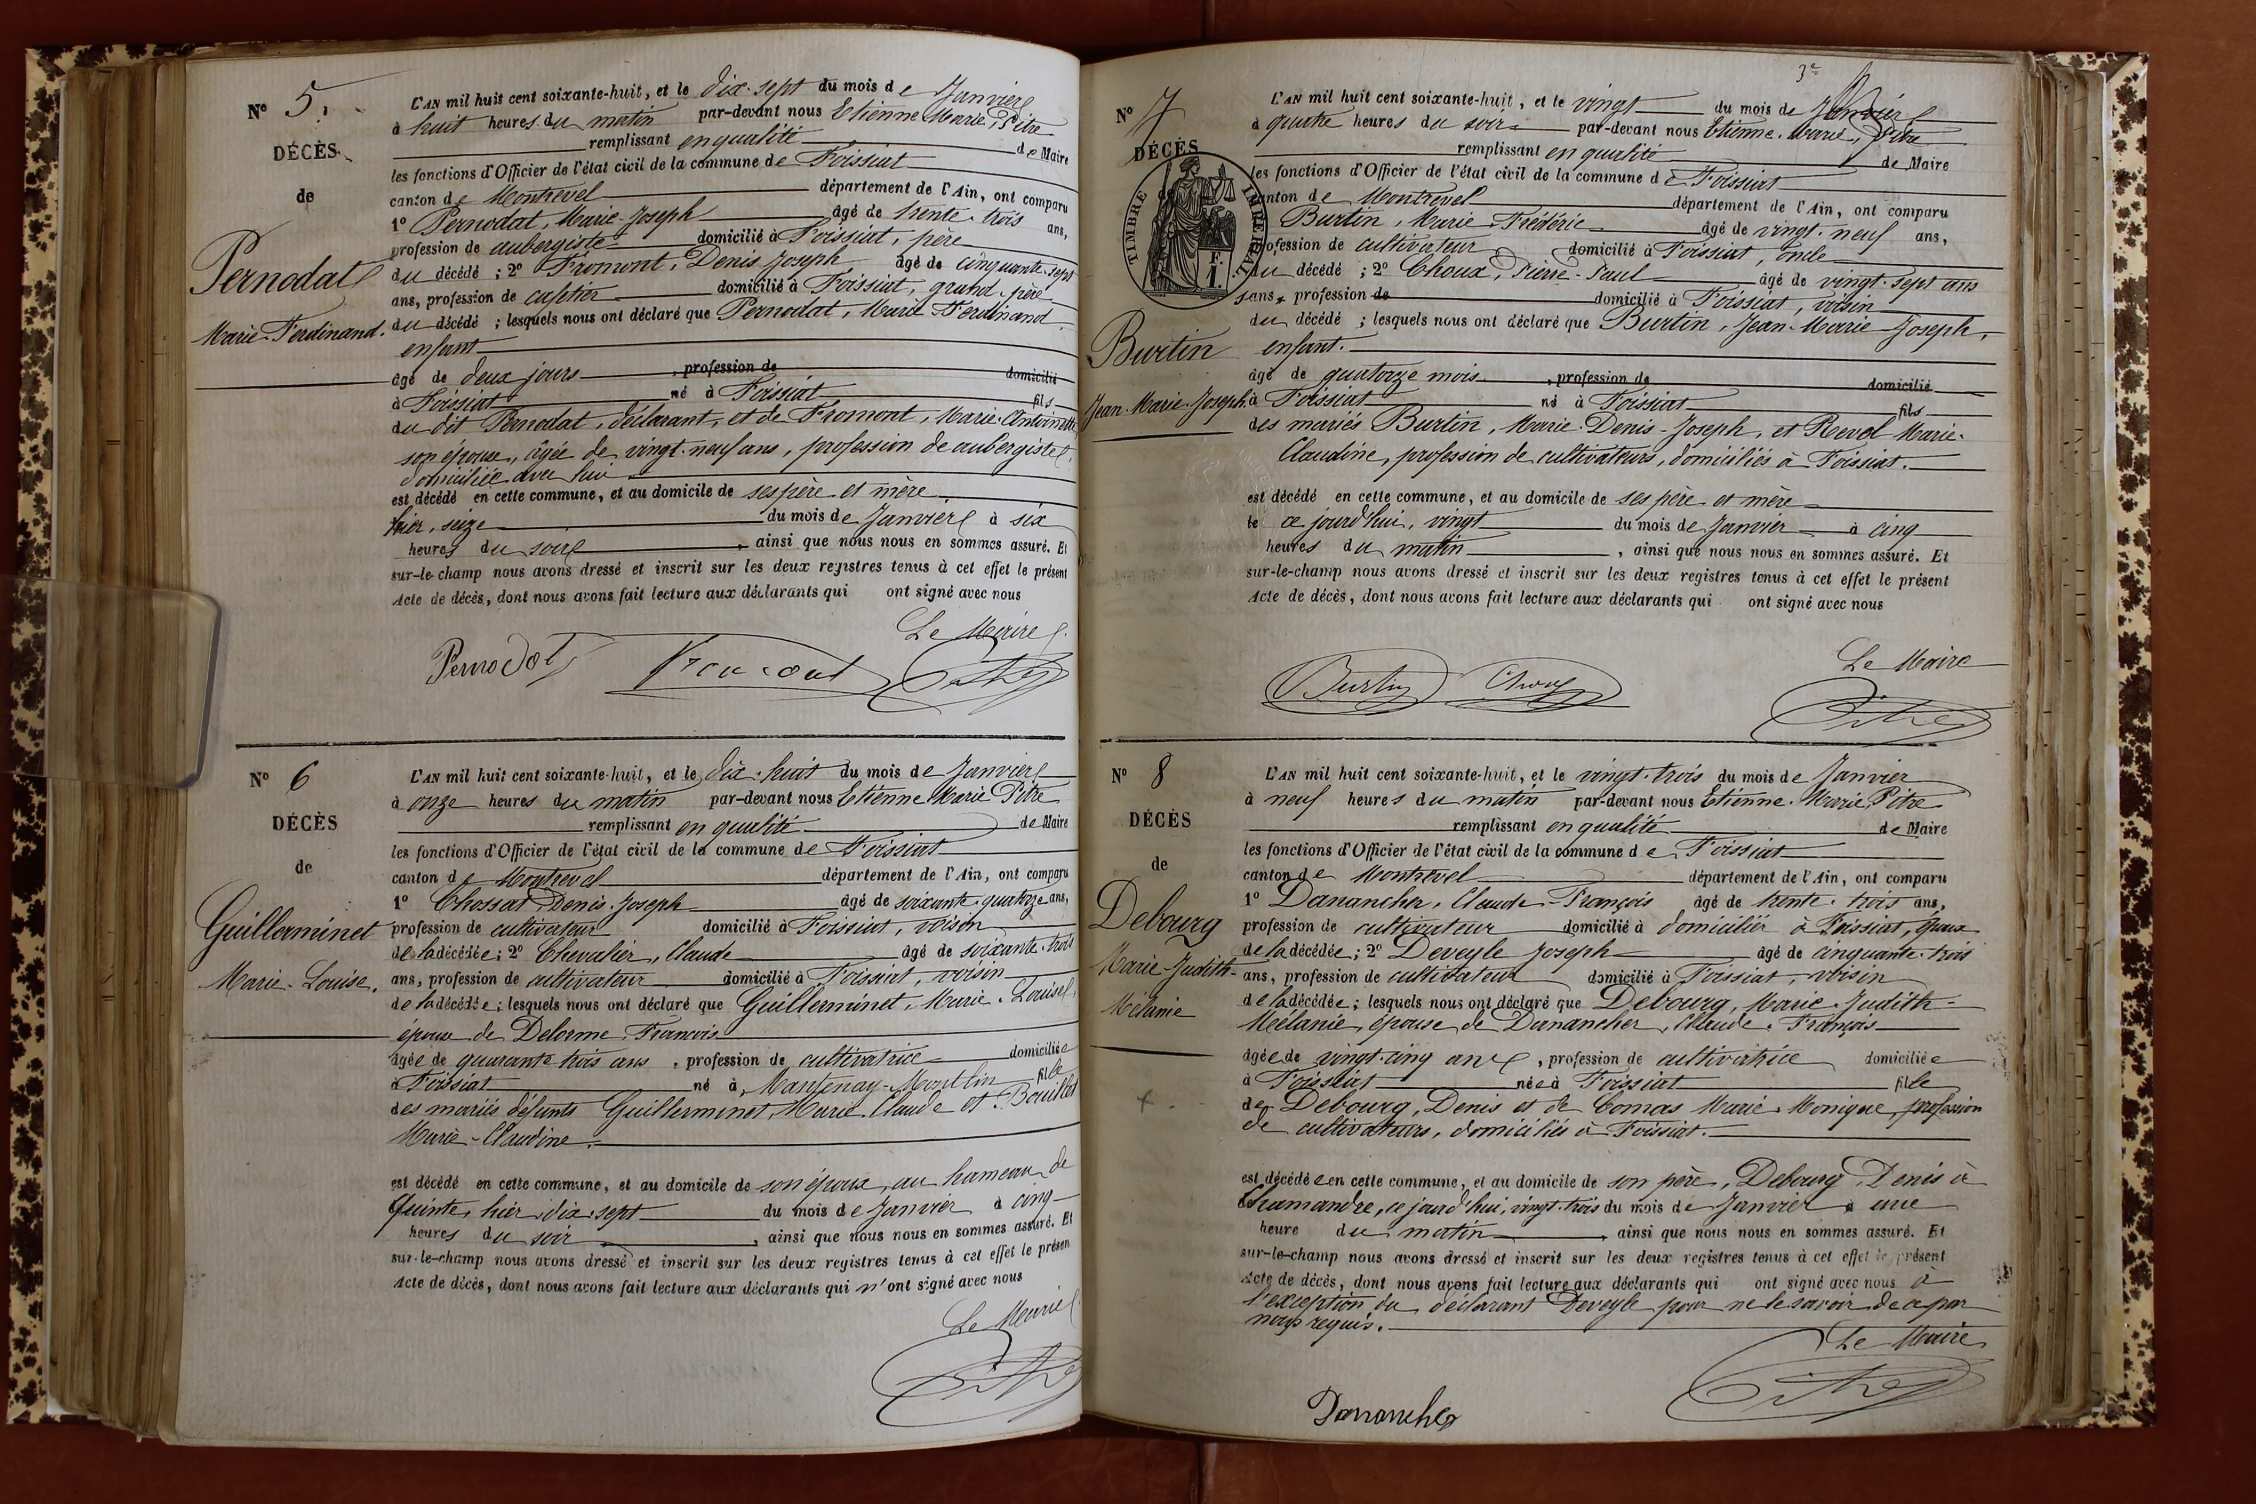 N° 5.
DÉCÈS
de
Pernodat
Marie-Ferdinand.
L'AN mil huit cent soixante-huit, et le dix-sept du mois de Janvier
à huit heures du matin par-devant nous Etienne Marie Pitre
remplissant en qualité de Maire
les fonctions d'Officier de l'état civil de la commune de Foissiat
canton de Montrevel département de l'Ain, ont comparu
1° Pernodat, Marie-Joseph âgé de trente-trois ans,
profession de aubergiste domicilié à Foissiat, père
du décédé ; 2° Fromont, Denis Joseph âgé de cinquante-sept
ans, profession de cafetier domicilié à Foissiat, grand-père
du décédé ; lesquels nous ont déclaré que Pernodat, Marie Ferdinand
enfant
âgé de deux jours, profession de domicilié
à Foissiat né à Foissiat fils
du dit Pernodat, déclarant, et de Fromont, Marie-Antoinette
son épouse, âgée de vingt-neuf ans, profession de aubergiste,
domiciliée avec lui
est décédé en cette commune, et au domicile de ses père et mère
hier, seize du mois de Janvier à six
heures du soir, ainsi que nous nous en sommes assuré. Et
sur-le-champ nous avons dressé et inscrit sur les deux registres tenus à cet effet le présent
Acte de décès, dont nous avons fait lecture aux déclarants qui ont signé avec nous
Le Maire
Pernodat Pitre
N° 6
DÉCÈS
de
Guillerminet
Marie-Louise.
L'AN mil huit cent soixante-huit, et le dix-huit du mois de Janvier
à onze heures du matin par-devant nous Etienne Marie Pitre
remplissant en qualité de Maire
les fonctions d'Officier de l'état civil de la commune de Foissiat
canton de Montrevel département de l'Ain, ont comparu
1° Chossat Denis-Joseph âgé de soixante-quatorze ans,
profession de cultivateur domicilié à Foissiat, voisin
de la décédée ; 2° Chevalier, Claude âgé de soixante-trois
ans, profession de cultivateur domicilié à Foissiat, voisin
de la décédée ; lesquels nous ont déclaré que Guillerminet, Marie-Louise,
épouse de Delorme François
âgée de quarante trois ans, profession de cultivatrice domiciliée
à Foissiat né à Mantenay-Montlin fille
des mariés défunts Guillerminet Marie-Claude et Bouillot
Marie-Claudine.
est décédé en cette commune, et au domicile de son époux, au hameau de
Quinte, hier dix-sept du mois de Janvier à cinq
heures du soir, ainsi que nous nous en sommes assuré. Et
sur-le-champ nous avons dressé et inscrit sur les deux registres tenus à cet effet le présent
Acte de décès, dont nous avons fait lecture aux déclarants qui n'ont signé avec nous
Le Maire
Pitre
3e
N° 7
DÉCÈS
TIMBRE IMPÉRIAL
1 F.
Burtin
Jean-Marie-Joseph.
L'AN mil huit cent soixante-huit, et le vingt du mois de Janvier
à quatre heures du soir par-devant nous Etienne-Marie Pitre
remplissant en qualité de Maire
les fonctions d'Officier de l'état civil de la commune de Foissiat
canton de Montrevel département de l'Ain, ont comparu
Burtin, Marie Frédéric âgé de vingt-neuf ans,
profession de cultivateur domicilié à Foissiat, oncle
du décédé ; 2° Choux, Pierre-Paul âgé de vingt-sept ans
sans profession de domicilié à Foissiat, voisin
du décédé ; lesquels nous ont déclaré que Burtin, Jean-Marie-Joseph,
enfant.
âgé de quatorze mois, profession de domicilié
à Foissiat né à Foissiat fils
des mariés Burtin, Marie-Denis-Joseph, et Revel Marie-
Claudine, profession de cultivateurs, domiciliés à Foissiat.
est décédé en cette commune, et au domicile de ses père et mère
le ce jourd'hui, vingt du mois de Janvier à cinq
heures du matin, ainsi que nous nous en sommes assuré. Et
sur-le-champ nous avons dressé et inscrit sur les deux registres tenus à cet effet le présent
Acte de décès, dont nous avons fait lecture aux déclarants qui ont signé avec nous
Le Maire
Burtin Choux Pitre
N° 8
DÉCÈS
de
Debourg
Marie-Judith-
Mélanie
L'AN mil huit cent soixante-huit, et le vingt-trois du mois de Janvier
à neuf heures du matin par-devant nous Etienne-Marie Pitre
remplissant en qualité de Maire
les fonctions d'Officier de l'état civil de la commune de Foissiat
canton de Montrevel département de l'Ain, ont comparu
1° Danancher, Claude-François âgé de trente-trois ans,
profession de cultivateur domicilié à domicilié à Foissiat, époux
de la décédée ; 2° Deveyle Joseph âgé de cinquante-trois
ans, profession de cultivateur domicilié à Foissiat, voisin
de la décédée ; lesquels nous ont déclaré que Debourg, Marie-Judith-
Mélanie, épouse de Danancher, Claude-François
âgée de vingt-cinq ans, profession de cultivatrice domiciliée
à Foissiat née à Foissiat fille
de Debourg, Denis et de Comas Marie-Monique, profession
de cultivateurs, domiciliés à Foissiat.
est décédée en cette commune, et au domicile de son père, Debourg, Denis à
Chamandre, ce jourd'hui, vingt-trois du mois de Janvier à une
heure du matin, ainsi que nous nous en sommes assuré. Et
sur-le-champ nous avons dressé et inscrit sur les deux registres tenus à cet effet le présent
Acte de décès, dont nous avons fait lecture aux déclarants qui ont signé avec nous à
l'exception du déclarant Deveyle pour ne le savoir de ce par
nous requis.
Le Maire
Pitre
Danancher